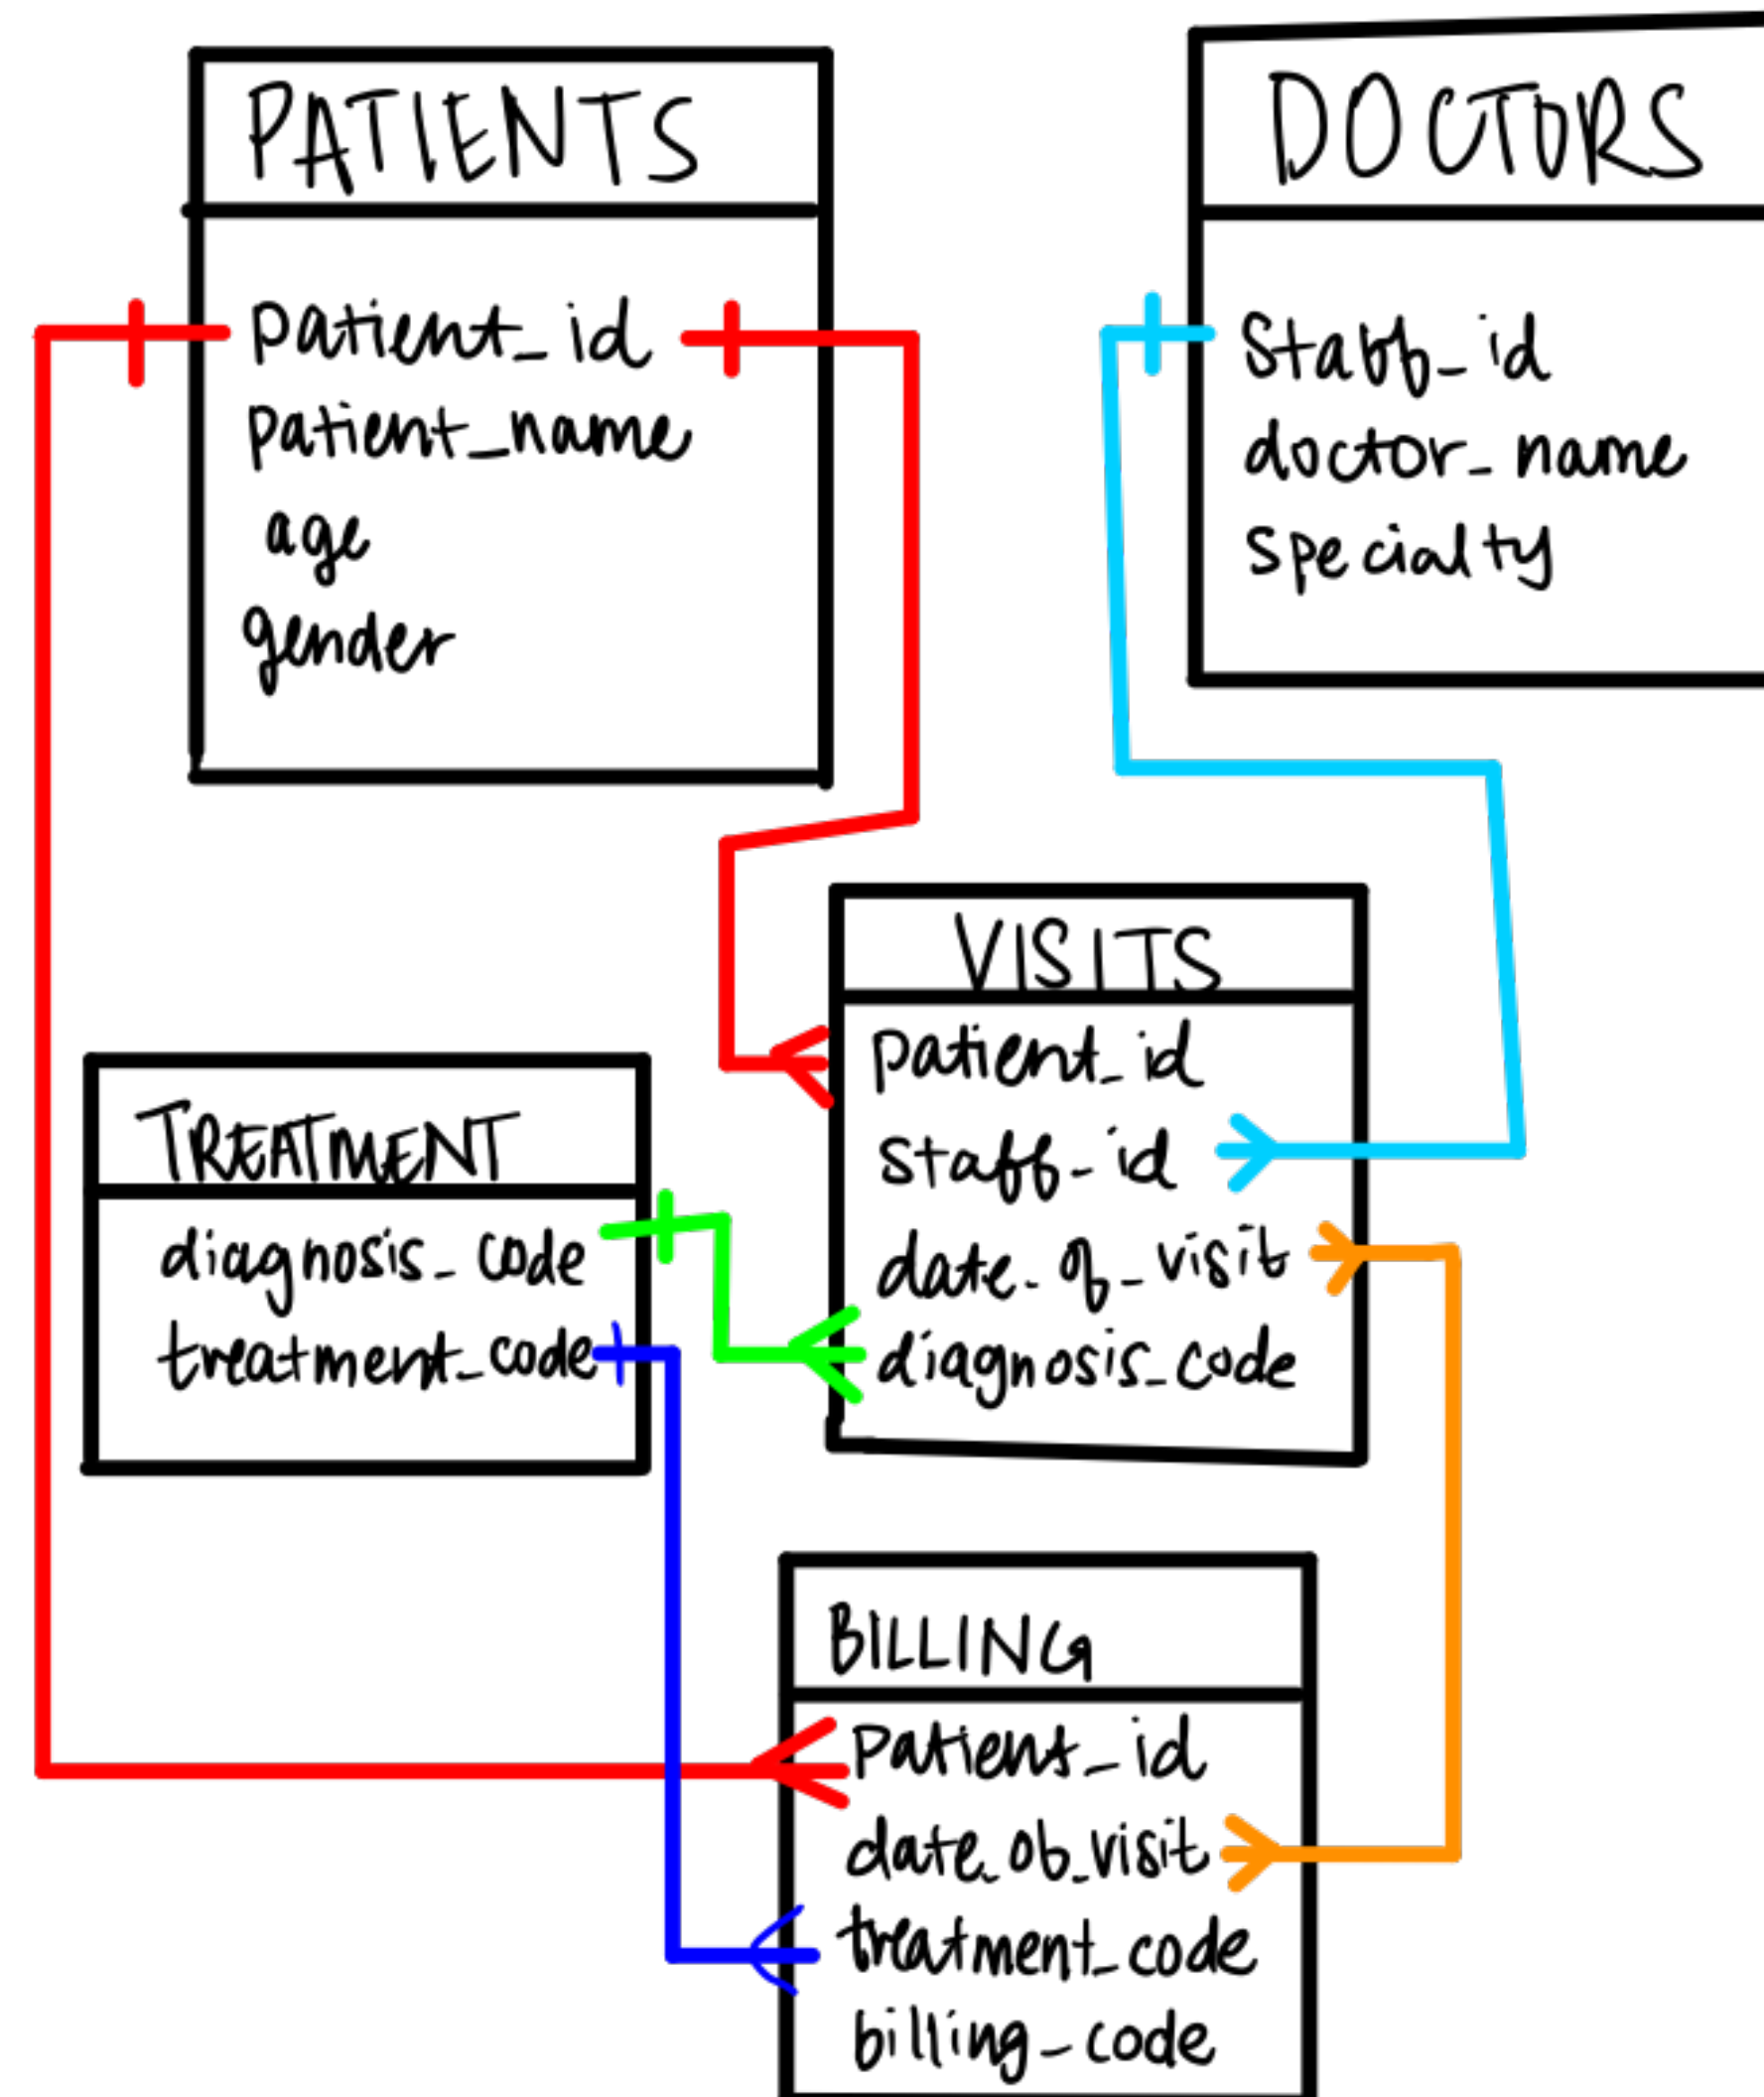 PATIENTS
patient_id
patient_name
age
gender
DOCTORS
staff_id
doctor_name
specialty
VISITS
patient_id
staff_id
date_of_visit
diagnosis_code
TREATMENT
diagnosis_code
treatment_code
BILLING
patient_id
date_of_visit
treatment_code
billing_code